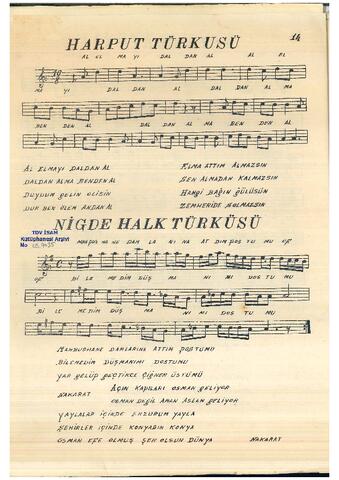 HARPUT TÜRKÜSÜ
14
AL EL MA YI DAL DAN AL AL EL
MA YI DAL DAN AL DAL DAN AL MA
BEN DEN AL DAL DAN AL MA BEN DEN AL
AL ELMAYI DALDAN AL
DALDAN ALMA BENDEN AL
DUYDUM GELİN
DUR BEN ÖLEM ANDAN AL
ELMA ATTIM ALMAZSIN
SEN ALMADAN KALMAZSIN
HANGİ BAĞIN GÜLÜSÜN
ZEMHERİDE SOLMAZSIN
TDV İSAM
Kütüphanesi Arşivi
No
NİĞDE HALK TÜRKÜSÜ
MAH PUS HA NE DAM LA RI NA AT DIM POS TU MU OF
OF Bİ LE ME DİM DÜŞ MA NI MI DOS TU MU
Bİ LE ME DİM DÜŞ MA NI MI DOS TU MU
MAHBUSHANE DAMLARINA ATTIM POSTUMU
BİLEMEDİM DÜŞMANIMI DOSTUMU
YAR GELÜP GEÇTİKCE ÇİĞNER ÜSTÜMÜ
NAKARAT
AÇIN KAPILARI OSMAN GELİYOR
OSMAN DEĞİL AMAN ASLAN GELİYOR
YAYLALAR İÇİNDE ERZURUM YAYLA
ŞEHİRLER İÇİNDE KONYADIR KONYA
OSMAN EFE OLMUŞ ŞEN OLSUN DÜNYA NAKARAT